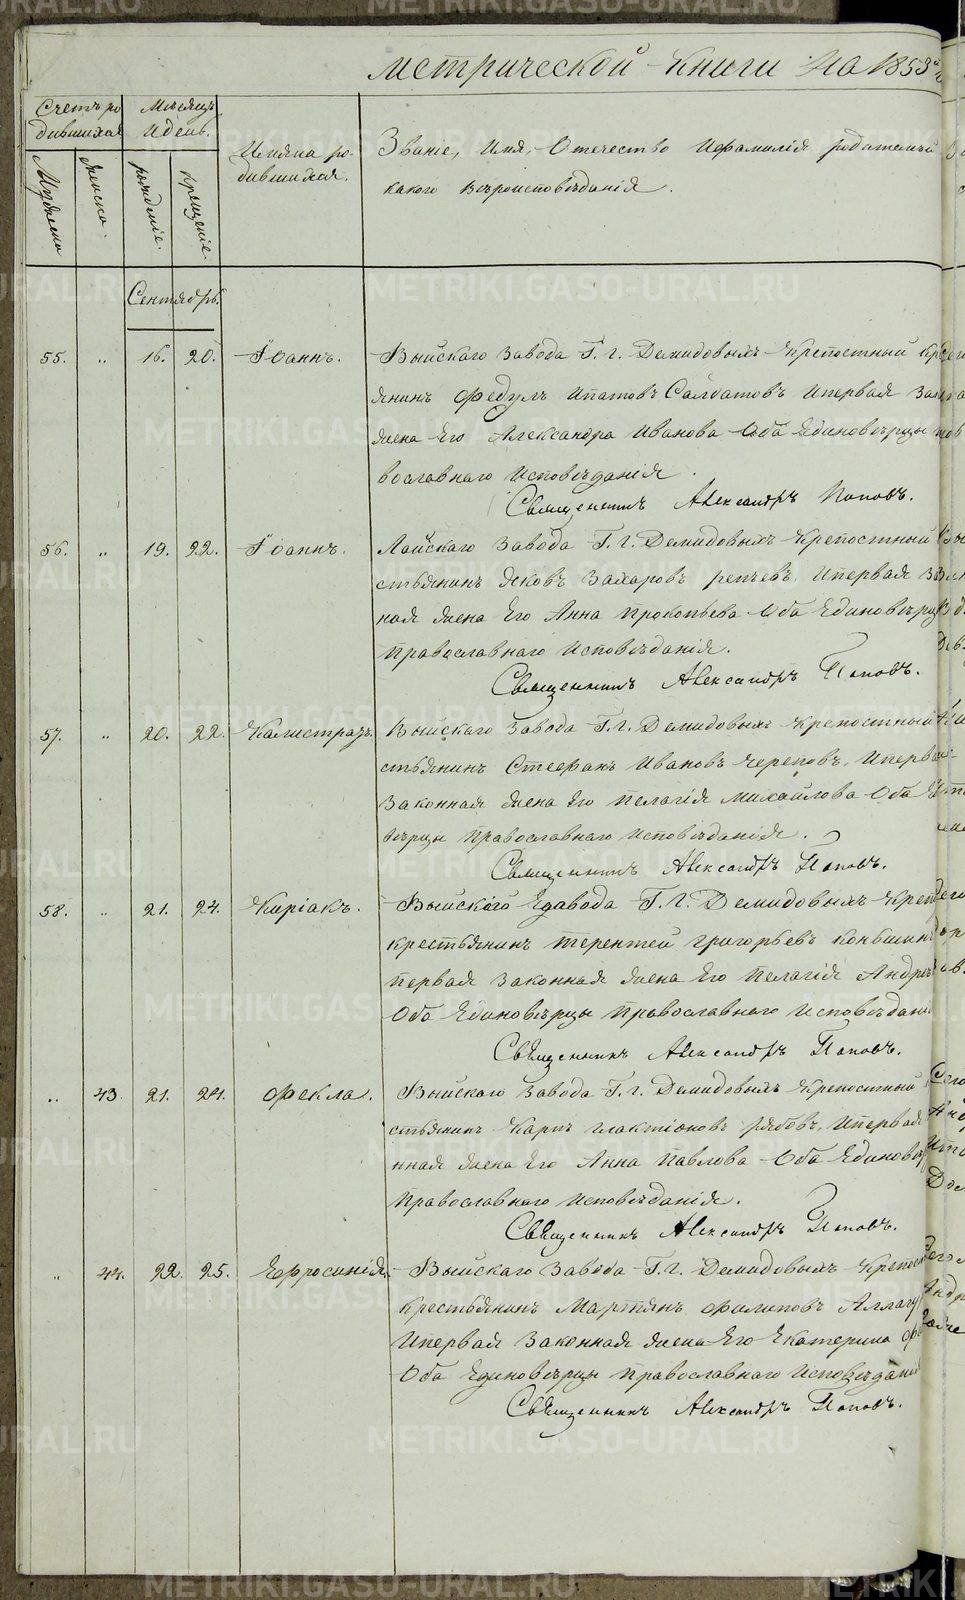 Метрической Книги На 1853й
Счетъ ро
дившихся
Мѣсяцъ
и день.
Имяна ро-
дившихся.
Званіе, Имя, Отечество и фамилія родителей
какого вѣроисповѣданія.
Мужеска
женска.
рожденіе.
крещеніе.
Сентябрь.
55. „ 16. 20. Іоаннъ. Выйскаго завода Г. г. Демидовыхъ Крепостный кр
янинъ Федулъ Ипатовъ Салдатовъ и первая зак
жена его Александра Иванова Оба Единоверцы
вославнаго исповѣданія.
Священникъ Александръ Поповъ.
56. „ 19. 22. Іоаннъ. Лайскаго завода Г. г. Демидовыхъ Крепостный
стьянинъ Яковъ Захаровъ репьевъ, и первая за
ная жена его Анна Прокопьева Оба Единоверцы
Православнаго исповѣданія.
Священникъ Александръ Поповъ.
57. „ 20. 22. Калистратъ. Выйскаго завода Г. г. Демидовыхъ крепостный
стьянинъ Стефанъ Ивановъ Череповъ, и первая
законная жена его Пелагія Михайлова Оба Е
верцы Православнаго исповѣданія.
Священникъ Александръ Поповъ.
58. „ 21. 24. Киріакъ. Выйскаго завода Г. г. Демидовыхъ Креп
крестьянинъ Терентей Григорьевъ Коньшинъ
первая законная жена его Пелагія Андре
Оба Единоверцы Православнаго исповѣдан
Священникъ Александръ Поповъ.
„ 43. 21. 24. Фекла. Выйскаго завода Г. г. Демидовыхъ Крепостный
стьянинъ Карпъ Глактіоновъ рябовъ, и первая
нная жена его Анна Павлова Оба Единовер
Православнаго исповѣданія.
Священникъ Александръ Поповъ.
„ 44. 22. 25. Ефросинія. Выйскаго завода Г. г. Демидовыхъ Крепос
крестьянинъ Мартянъ Филиповъ Аллагу
и первая законная жена его Екатерина
Оба Единоверцы Православнаго исповѣдані
Священникъ Александръ Поповъ.
METRIKI.GASO-URAL.RU